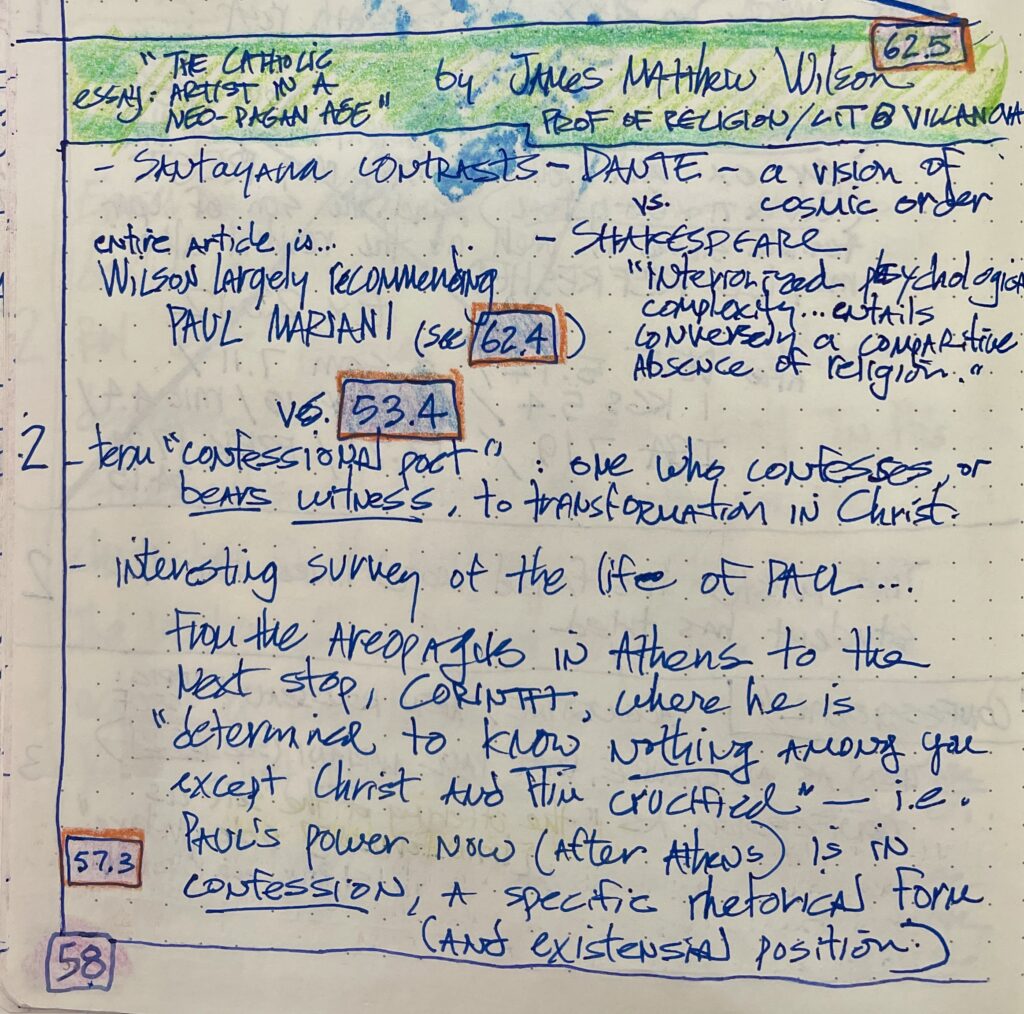 62.5
"THE CATHOLIC
essay: ARTIST IN A
NEO-PAGAN AGE"
by JAMES MATTHEW WILSON
PROF OF RELIGION/LIT @ VILLANOVA
- SANTAYANA CONTRASTS - DANTE - a vision of
vs. cosmic order
- SHAKESPEARE
"interiorized psychological
complexity... entails
conversely a comparitive
absence of religion."
entire article is...
Wilson largely recommending
PAUL MARIANI (see 62.4)
vs. 53.4
.2 - term "confessional poet" : one who confesses, or
bears witness, to transformation in Christ.
- interesting survey of the life of PAUL...
From the AREOPAGUS in Athens to the
next stop, CORINTH, where he is
"determined to know nothing among you
except Christ and Him crucified" — i.e.
PAUL's power now (after Athens) is in
confession, a specific rhetorical form
(and existensial position.)
57.3
58